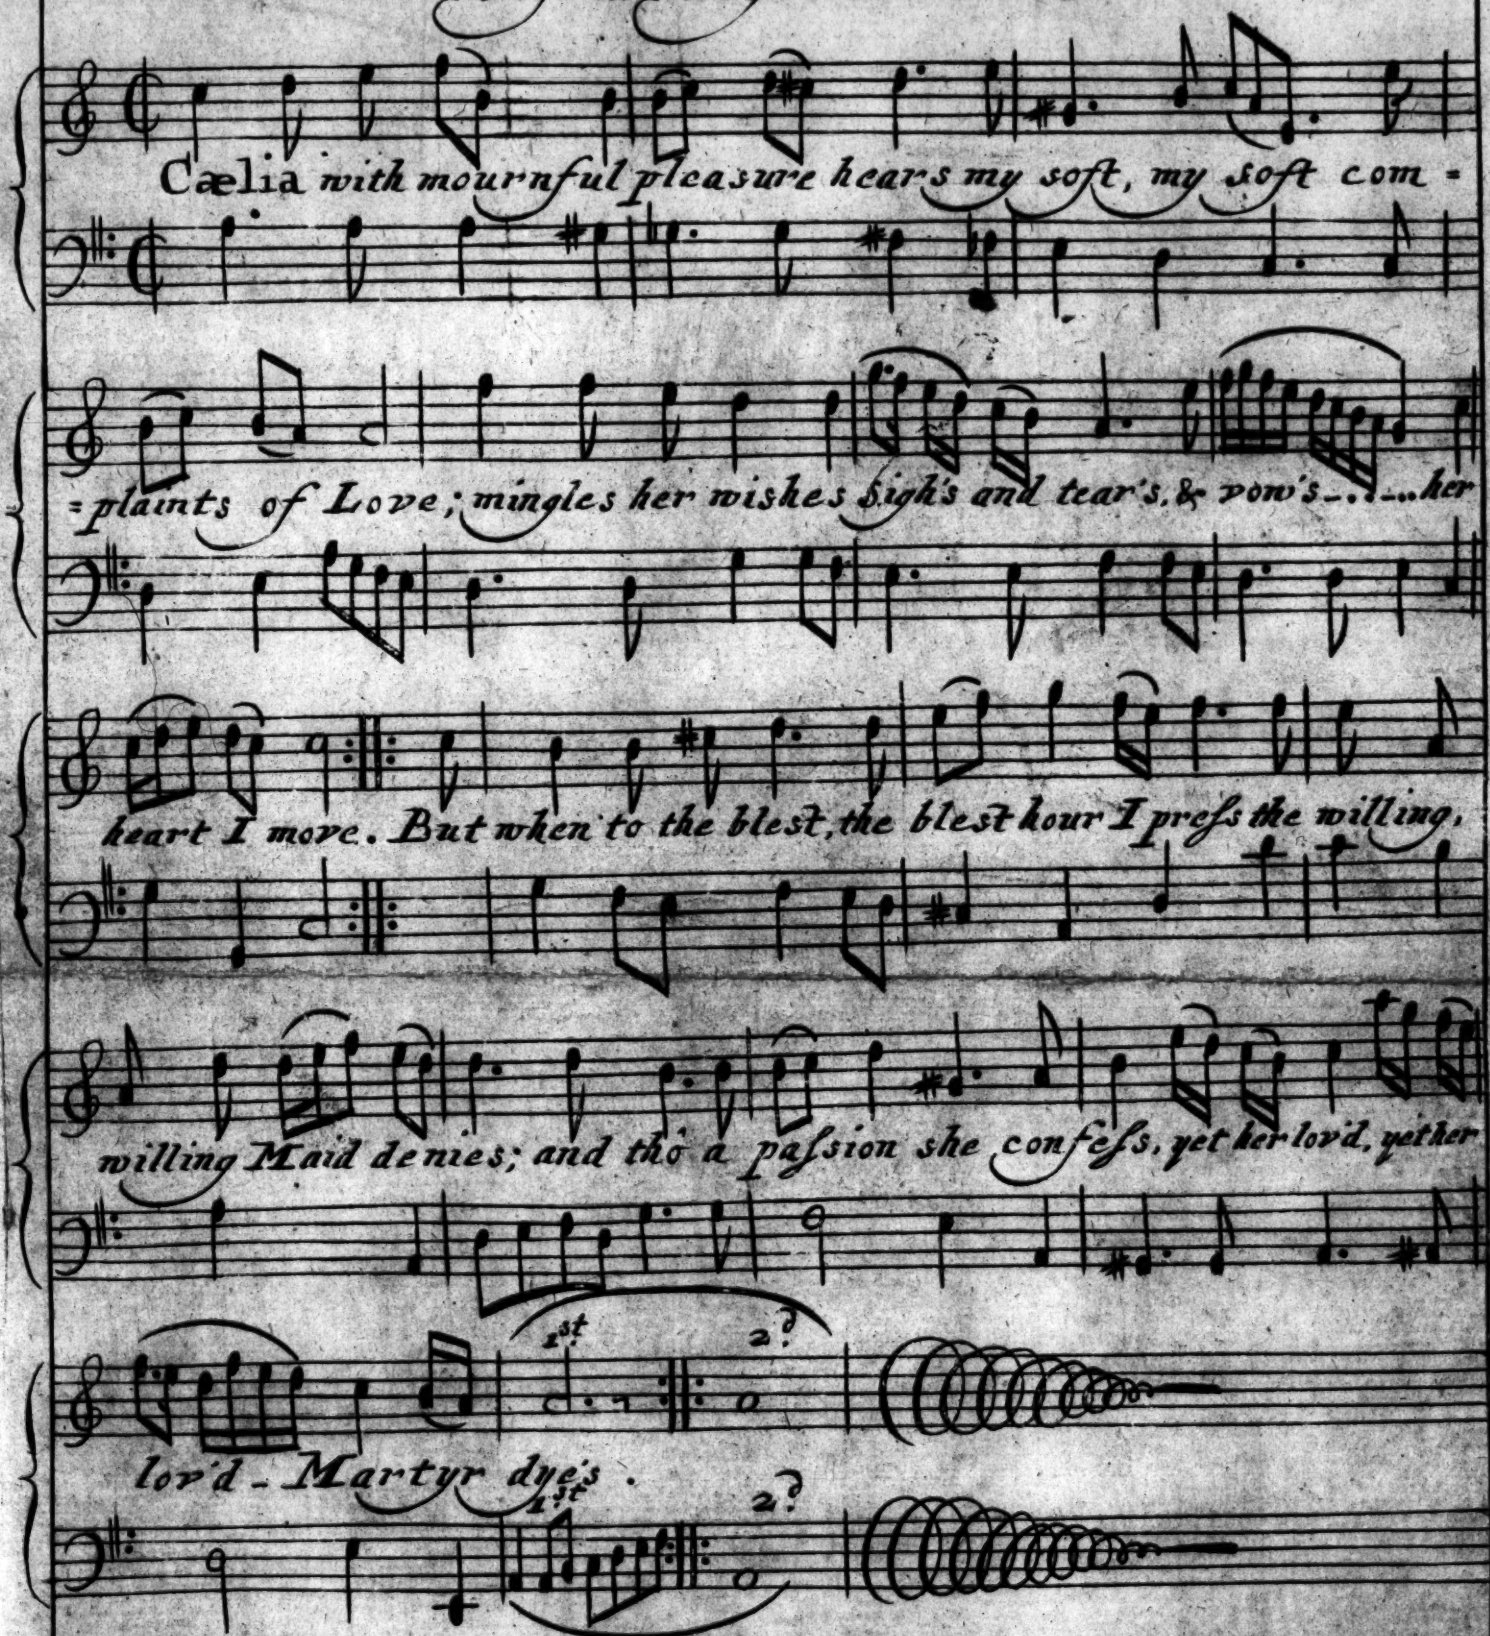 Cælia with mournful pleasure hears my soft, my soft com =
= plaints of Love; mingles her wishes sigh's and tear's, & vow's -.....- her
heart I move. But when to the blest, the blest hour I preſs the willing,
willing Maid denies; and tho' a paſsion she confeſs, yet her lov'd, yet her
1st. 2d.
lov'd - Martyr dye's .
1st 2d.